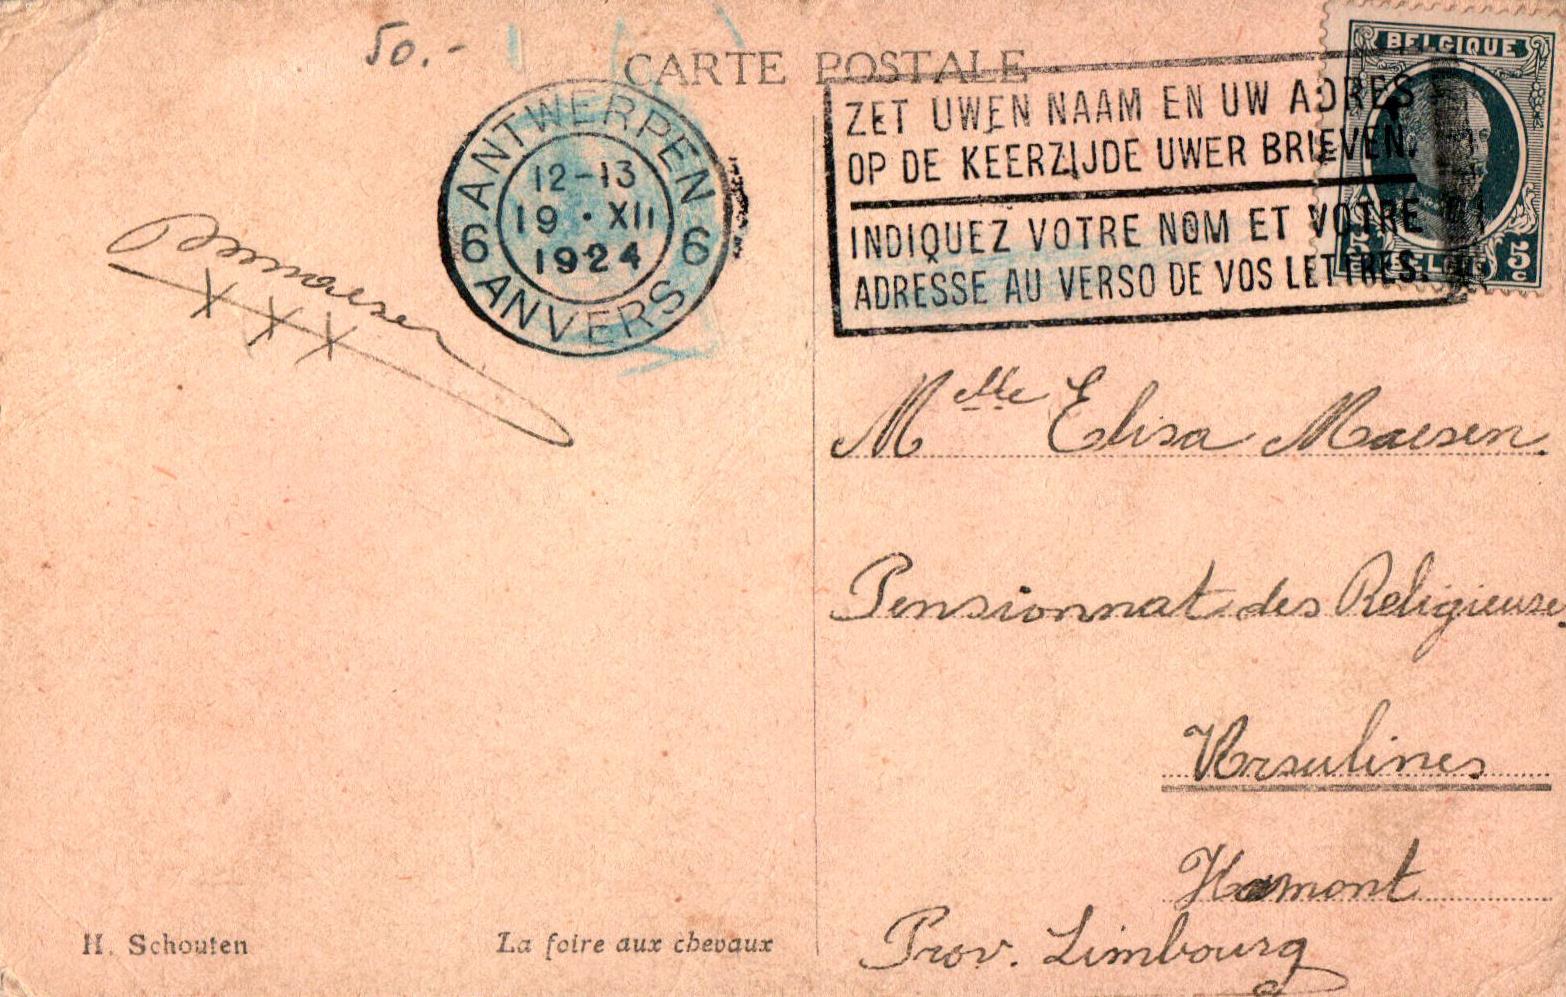 50.-
CARTE POSTALE
ANTWERPEN
12-13
19 · XII
1924
6 6
ANVERS
ZET UWEN NAAM EN UW ADRES
OP DE KEERZIJDE UWER BRIEVEN.
INDIQUEZ VOTRE NOM ET VOTRE
ADRESSE AU VERSO DE VOS LETTRES.
BELGIQUE
5c
Maesen
X X X
Melle Elisa Maesen.
Pensionnat des Religieuses
Ursulines
Hamont
Prov. Limbourg
H. Schouten
La foire aux chevaux